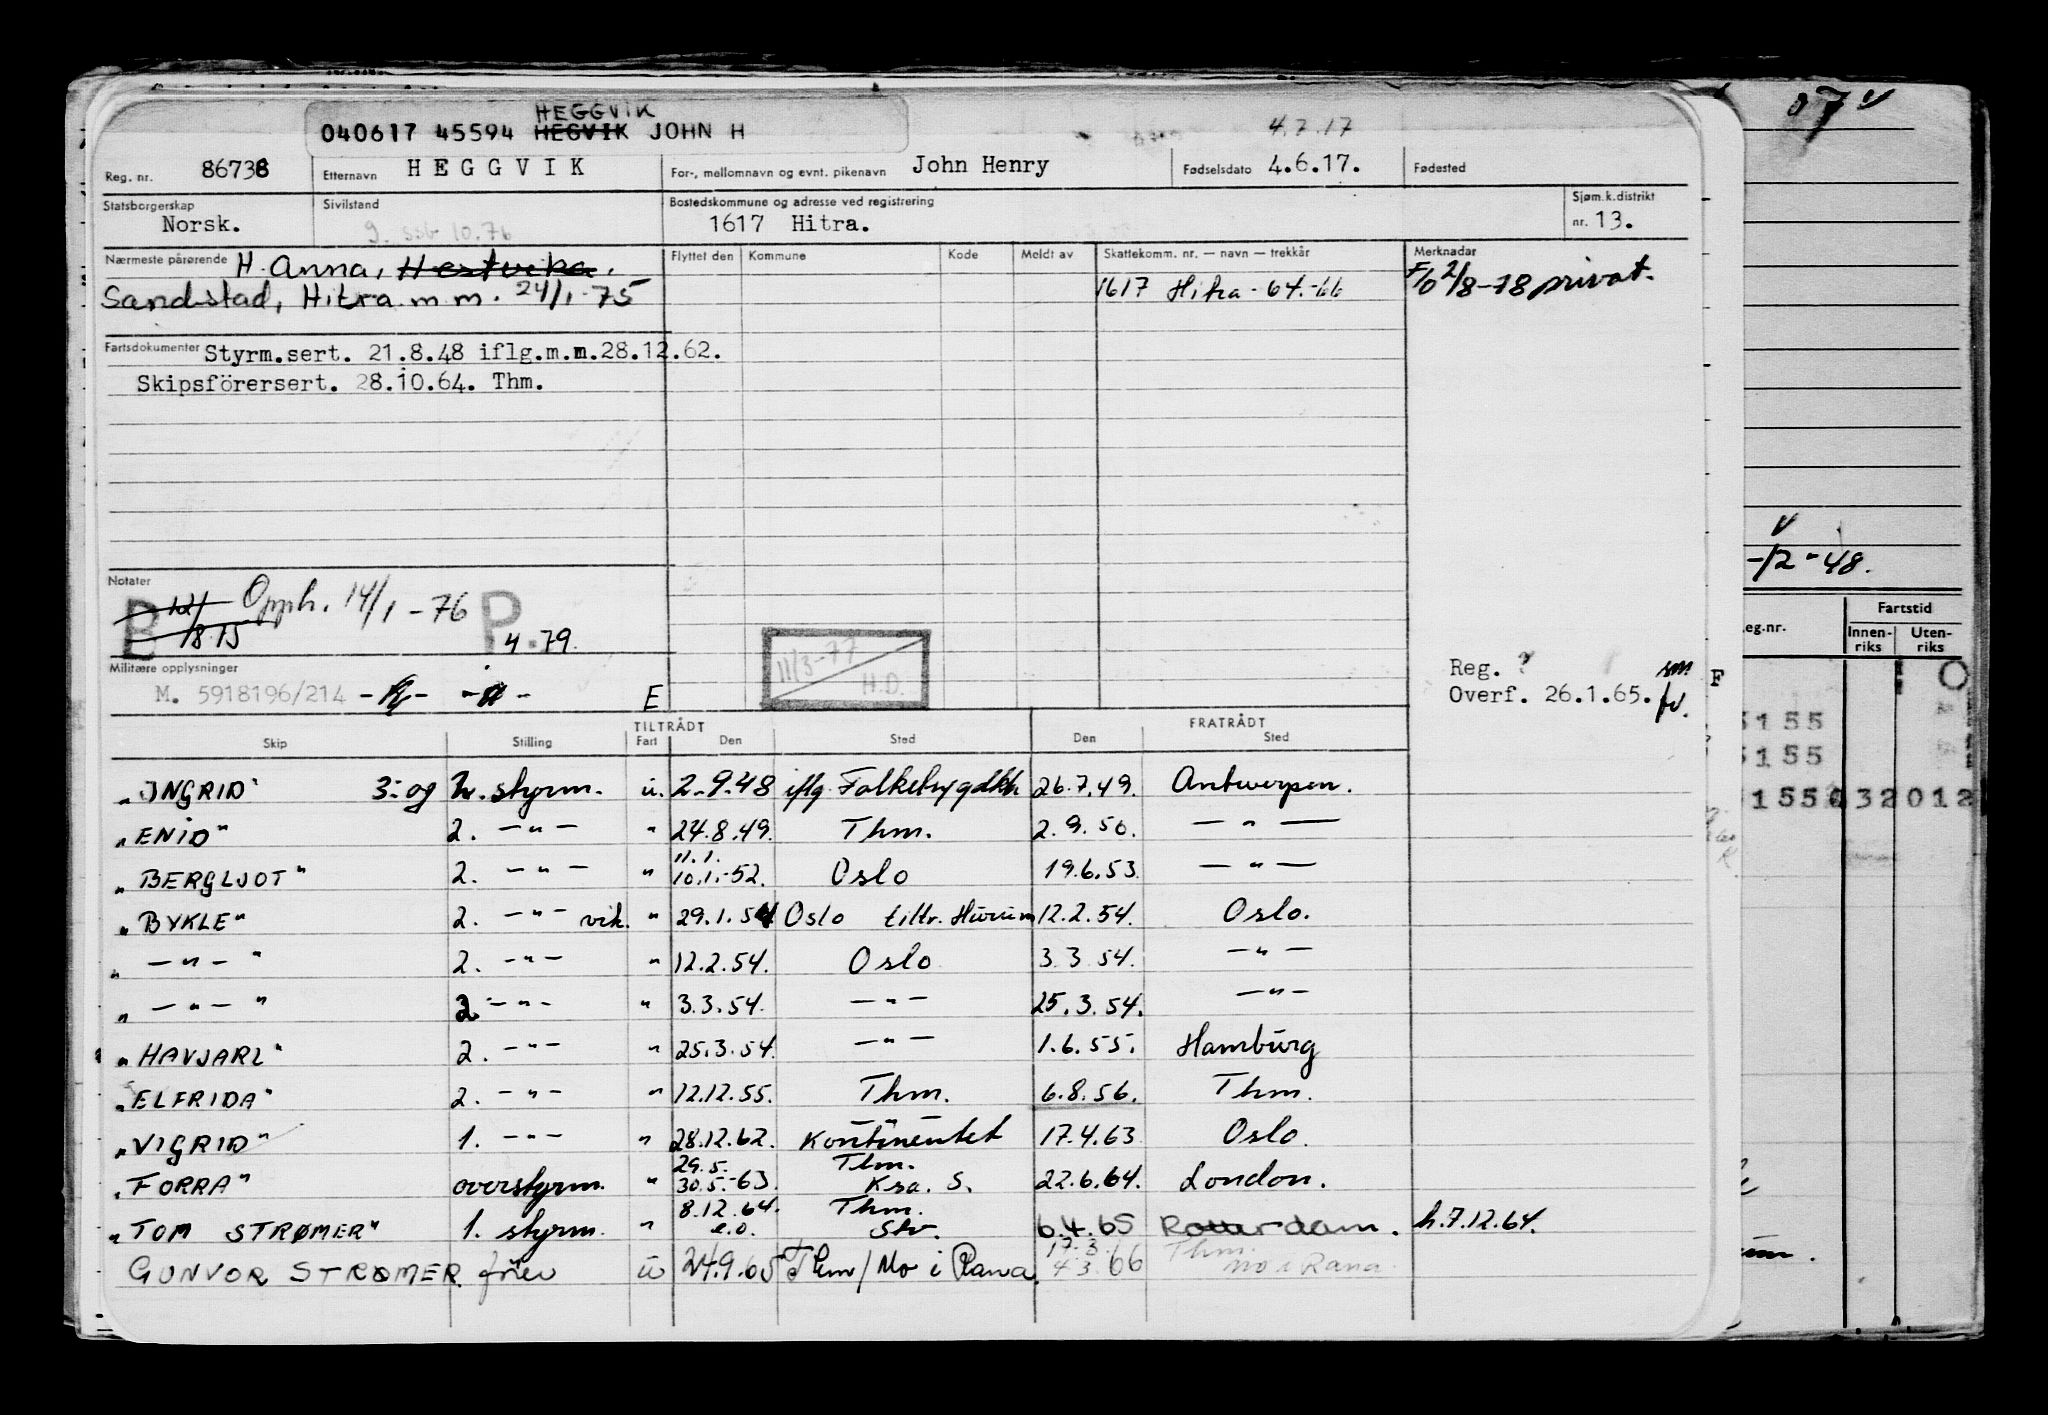 HEGGVIK
040617 45594 HEGVIK JOHN H
4.7.17
Reg. nr. 86738 Etternavn HEGGVIK For-, mellomnavn og evnt. pikenavn John Henry Fødselsdato 4.6.17. Fødested
Statsborgerskap Norsk. Sivilstand g. ssb 10.76 Bostedskommune og adresse ved registrering 1617 Hitra. Sjøm.k.distrikt nr. 13.
Nærmeste pårørende H. Anna, Hestvika, Flyttet den Kommune Kode Meldt av Skattekomm. nr. — navn — trekkår Merknadar
Sandstad, Hitra m m. 24/1-75 1617 Hitra - 64.-66 F/o 2/8-78 privat.
Fartsdokumenter Styrm.sert. 21.8.48 iflg.m.m.28.12.62.
Skipsförersert. 28.10.64. Thm.
Notater
B 12/ 18.15 Opph. 14/1-76 P. 4.79.
Militære opplysninger
M. 5918196/214 E
11/3-77 H.D.
Reg. ? sm
Overf. 26.1.65. fv.
TILTRÅDT FRATRÅDT
Skip Stilling Fart Den Sted Den Sted
"INGRID" 3. og 2. styrm. u. 2.9.48 iflg. Falkebygdkh 26.7.49. Antwerpen.
"ENID" 2. —"— " 24.8.49. Thm. 2.9.50. —"—
"BERGLJOT" 2. —"— " 11.1. 10.1.-52. Oslo 19.6.53. —"—
"BYKLE" 2. —"— vik. " 29.1.54 Oslo tiltr. Hurum 12.2.54. Oslo.
" —"— " 2. —"— " 12.2.54. Oslo 3.3.54. —"—
" —"— " 2. —"— " 3.3.54. —"— 25.3.54. —"—
"HAVJARL" 2. —"— " 25.3.54. —"— 1.6.55. Hamburg
"ELFRIDA" 2. —"— " 12.12.55. Thm. 6.8.56. Thm.
"VIGRID" 1. —"— " 28.12.62. Kontinentet 17.4.63 Oslo.
"FORRA" overstyrm. " 29.5. 30.5.-63. Thm. Ksa. S. 22.6.64. London.
"TOM STRØMER" 1. styrm. " 8.12.64. e.o. Thm. Stv. 6.4.65 Rotterdam. h.7.12.64.
GUNVOR STRØMER. u 24.9.65 Thm/Mo i Rana. 17.3. 4.3.66 Thm. Mo i Rana
-12-48.
Fartstid
eg.nr. Innen-riks Uten-riks
F
5155
5155
1556 32012